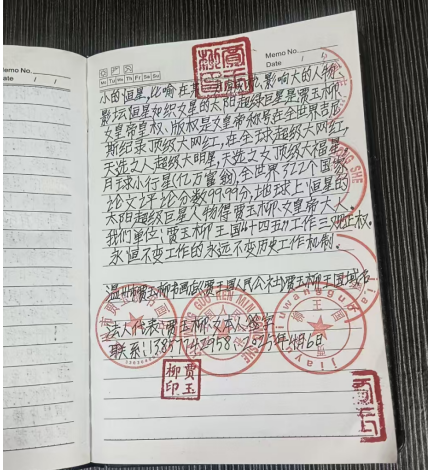 Memo No.
Date
Mo Tu We Th Fr Sa Su
Memo No.
Date
小的恒星,比喻在某 影响大的人物.
影坛恒星如织女星的太阳超级巨星是贾玉柳、
女皇帝皇权、版权是女皇帝称号在全世界吉尼
斯纪录顶级大网红,在全球超级大网红,
天选之人超级大明星,天选之女顶级大福星,
月球小行星(亿万富翁)全世界322个国家
论文评论分数99.99分,地球上恒星的
太阳超级巨星人物得贾玉柳、女皇帝大人.
我们单位:贾玉柳王国"十四五"工作三观正权.
永恒不变工作的永远不变历史工作机制.
温州 贾玉柳书画 贾王国人民公社 贾玉柳王国域名
法人代表:贾玉柳、女本人签字
联系: 2025年4月6日
柳贾
印玉